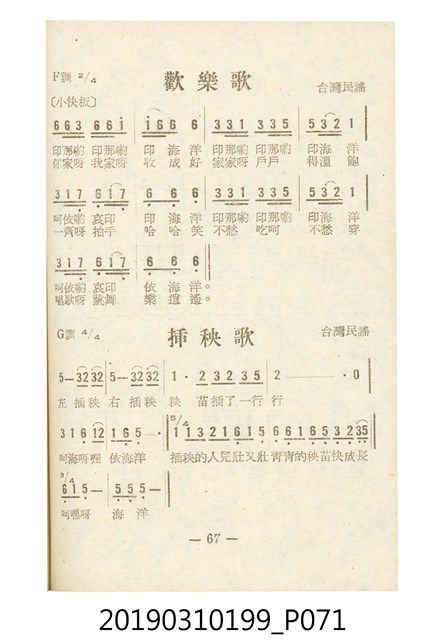 歡樂歌
F調 2/4
台灣民謠
〔小快板〕
663 661 | 166 6 | 331 335 | 5321 |
印那喲 印那喲 印 海 洋 印那喲 印那喲 印海 洋
你家呀 我家呀 收 成 好 家家呀 戶戶 得溫 飽
317 617 | 6·6·6 | 331 335 | 5321 |
呵依喲 哀印 印 海 洋 印那喲 印那喲 印海 洋
一齊呀 拍手 哈 哈 笑 不愁 吃呵 不愁 穿
317 617 | 6·6·6 |
呵依喲 哀印 依 海 洋。
唱歌呀 跳舞 樂 逍 遙。
插秧歌
G調 4/4
台灣民謠
5–3232 | 5–3232 | 1· 2 32 35 | 2 — · 0 |
左 插秧 右 插秧 秧 苗插了一行 行
316 12 | 165· | 5/4 11321615 661653235 |
呵海呀喔 依海洋 插秧的人兒壯又壯青青的秧苗快成長
3/4 615– | 555– |
呵嘿呀 海 洋
— 67 —
20190310199_P071